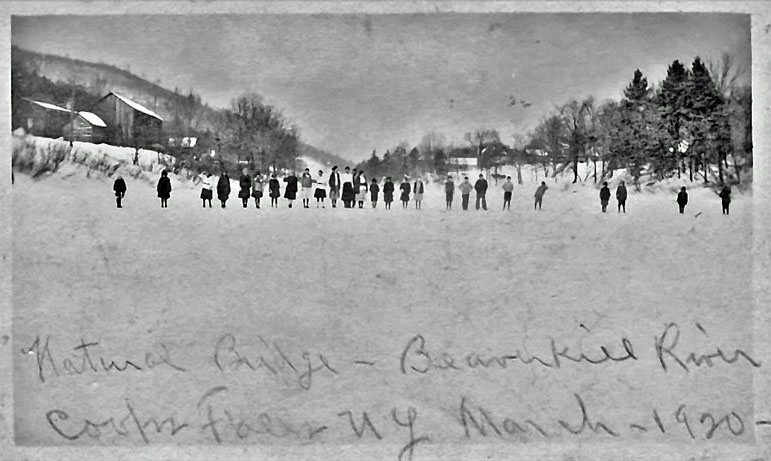 Natural Bridge - Beaverkill River
Coops Falls NY March - 1920 -